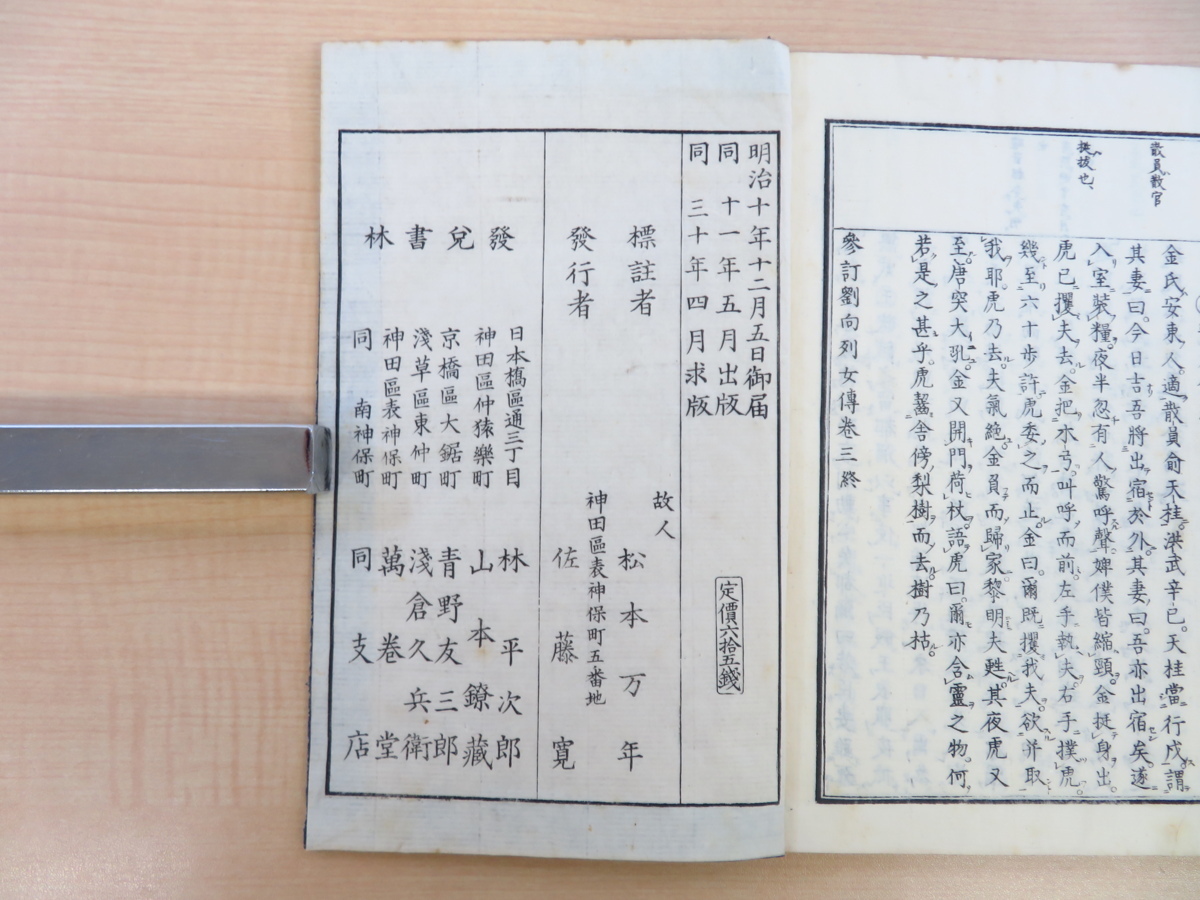 散員散官
挺拔也
金氏安東人適散員俞天桂洪武辛巳天桂當行戍謂
其妻曰今日吉吾將出宿於外其妻曰吾亦出宿矣遂
入室裝糧夜半忽有人驚呼聲婢僕皆縮頸金挺身出
虎已攫夫去金把木弓叫呼而前左手執夫右手撲虎
幾至六十步許虎委之而止金曰爾既攫我夫欲并取
我耶虎乃去夫氣絶金負而歸家黎明夫甦其夜虎又
至唐突大吼金又開門荷杖語虎曰爾亦含靈之物何
若是之甚乎虎齧舍傍梨樹而去樹乃枯
參訂劉向列女傳卷三終
明治十年十二月五日御届
同十一年五月出版
同三十年四月求版
定價六拾五錢
標註者 故人 松本万年
神田區表神保町五番地
發行者 佐藤寬
發兌書林
日本橋區通三丁目 林平次郎
神田區仲猿樂町 山本鐐藏
京橋區大鋸町 青野友三郎
淺草區東仲町 淺倉久兵衛
神田區表神保町 萬卷堂
同南神保町 同支店